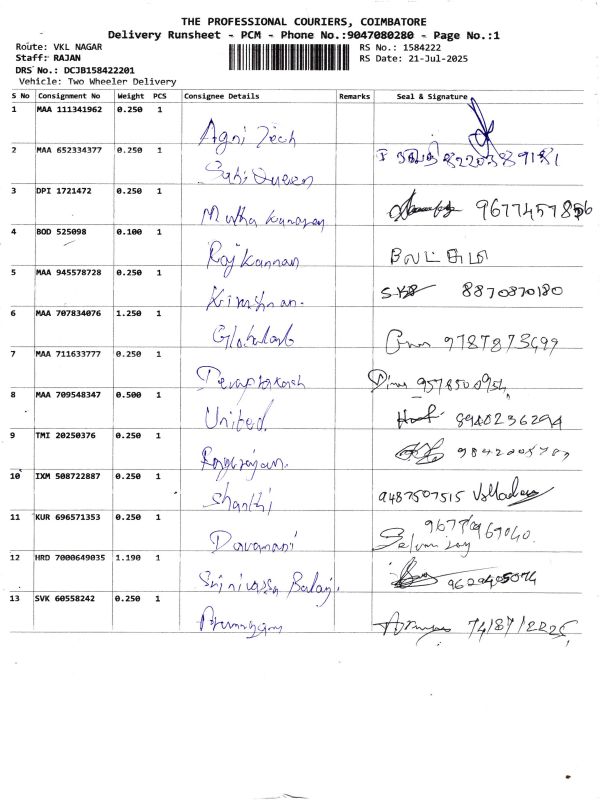 THE PROFESSIONAL COURIERS, COIMBATORE
Delivery Runsheet - PCM - Phone No.:9047080280 - Page No.:1
Route: VKL NAGAR RS No.: 1584222
Staff: RAJAN RS Date: 21-Jul-2025
DRS No.: DCJB158422201
Vehicle: Two Wheeler Delivery
S No Consignment No Weight PCS Consignee Details Remarks Seal & Signature
1 MAA 111341962 0.250 1
Agni Tech
2 MAA 652334377 0.250 1
Sabi Queen
3 DPI 1721472 0.250 1
Mutha Kumaran 9677457856
4 BOD 525098 0.100 1
Raj Kannan
5 MAA 945578728 0.250 1
8870870180
6 MAA 707834076 1.250 1
9787873699
7 MAA 711633777 0.250 1
Devaprakash
8 MAA 709548347 0.500 1
United 8940236294
9 TMI 20250376 0.250 1
10 IXM 508722887 0.250 1
Shanthi 9487507515
11 KUR 696571353 0.250 1
Davamani Selvaraj
12 HRD 7000649035 1.190 1
Srinivasa Balaji 9629405074
13 SVK 60558242 0.250 1
Arumugam